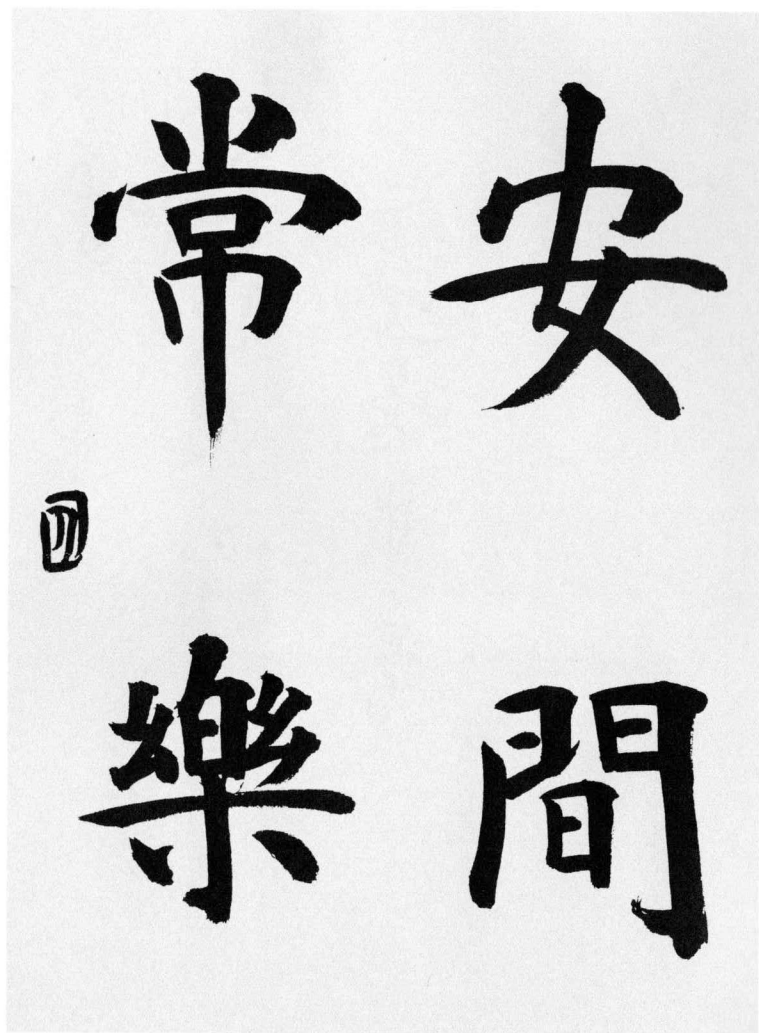 安間
常樂